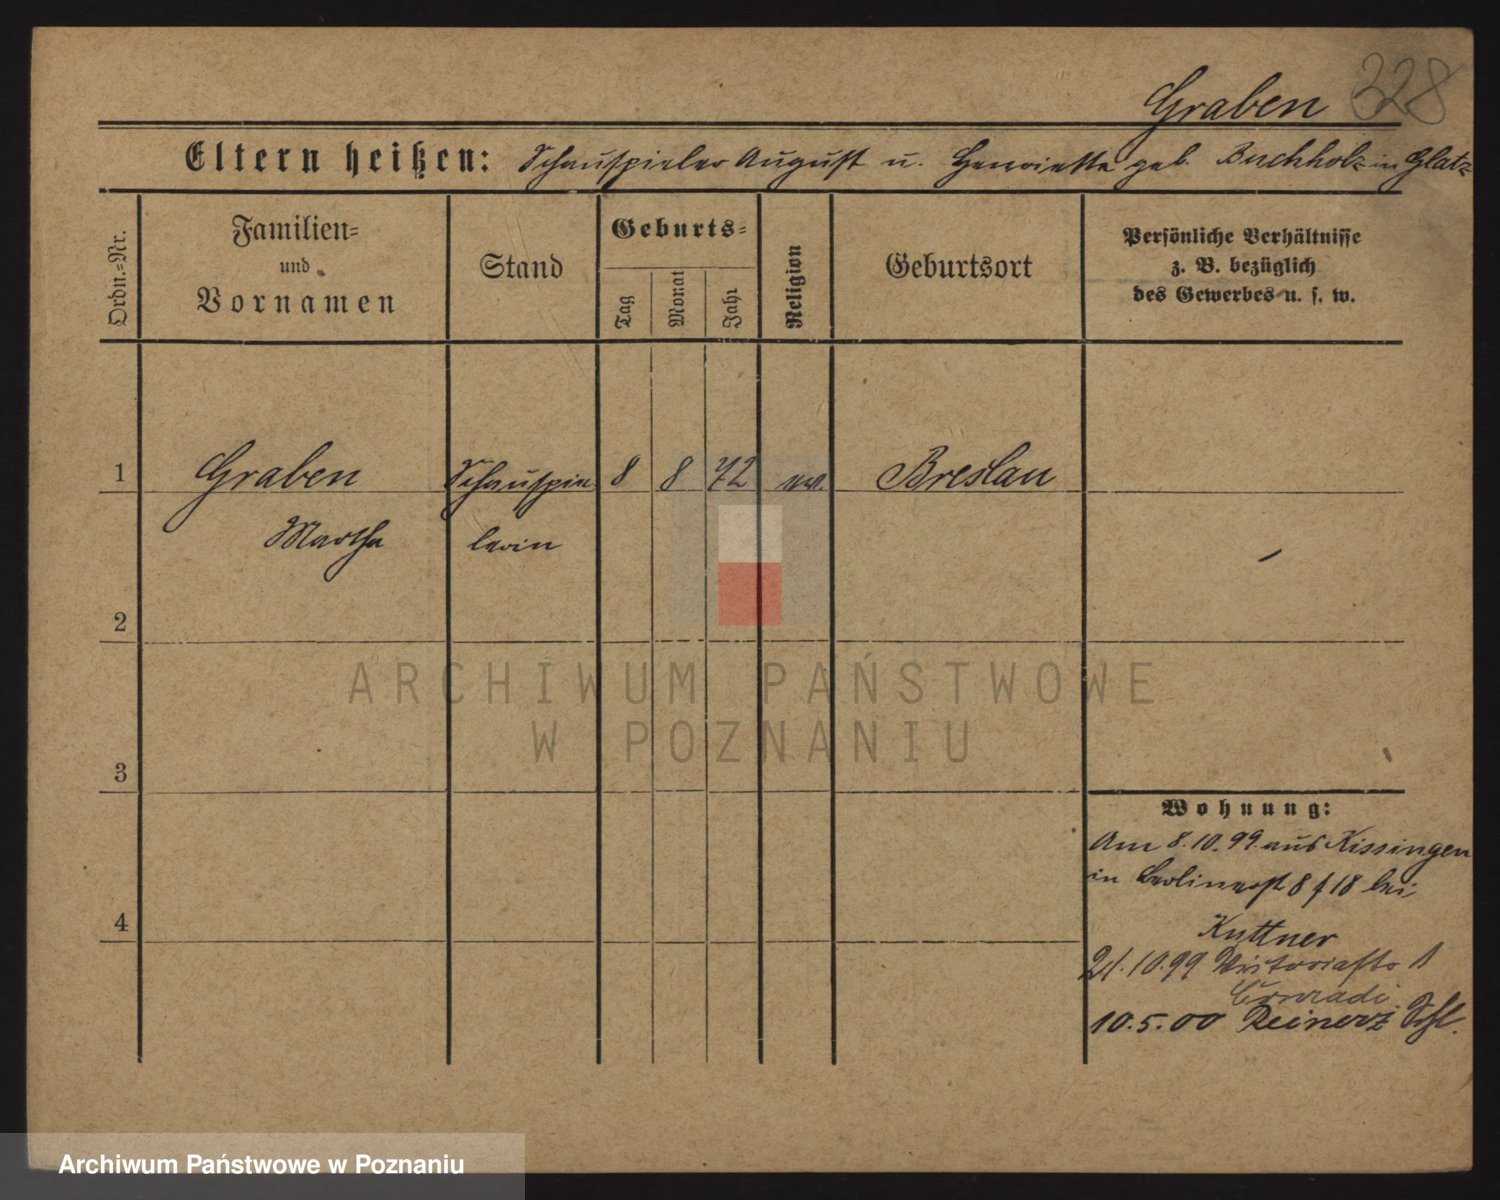 328
Graben
Eltern heißen: Schauspieler August u. Henriette geb. Buchholz in Glatz
Ordn.=Nr.
Familien=
und
Vornamen
Stand
Geburts=
Tag
Monat
Jahr
Religion
Geburtsort
Persönliche Verhältnisse
z. B. bezüglich
des Gewerbes u. s. w.
1 Graben Schauspie 8 8 72 ev. Breslau
Martha lerin
2
3
4
Wohnung:
Am 8.10.99. aus Kissingen
in Berlinerst 8 f 18 bei
Kuttner
21.10.99 Victoriastr 1
Conradi
10.5.00 Reinerz Schl.
ARCHIWUM PAŃSTWOWE
W POZNANIU
Archiwum Państwowe w Poznaniu